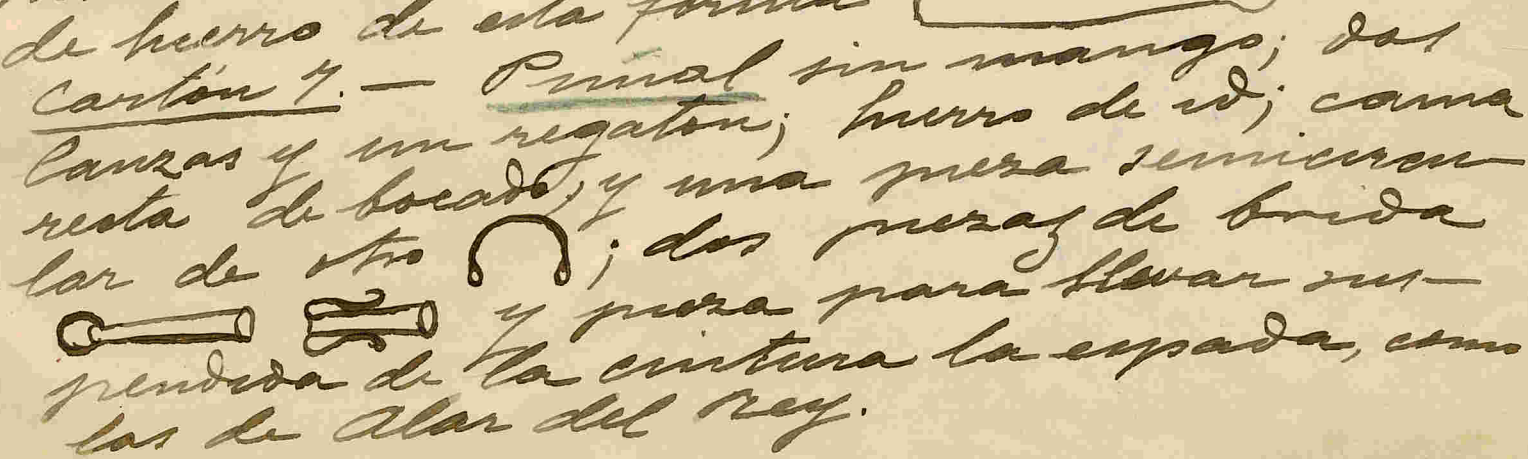 de hierro de esta forma
Cartón 7. — Puñal sin mango; dos
lanzas y un regatón; hierro de id; cama
recta de bocado; y una pieza semicircu-
lar de otro ; dos piezas de brida
y pieza para llevar sus-
pendida de la cintura la espada, como
las de Alar del Rey.